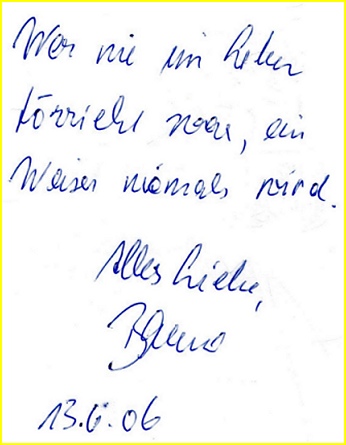 Wer nie im Leben
töricht war, ein
Weiser niemals wird.
Alles Liebe,
13.6.06